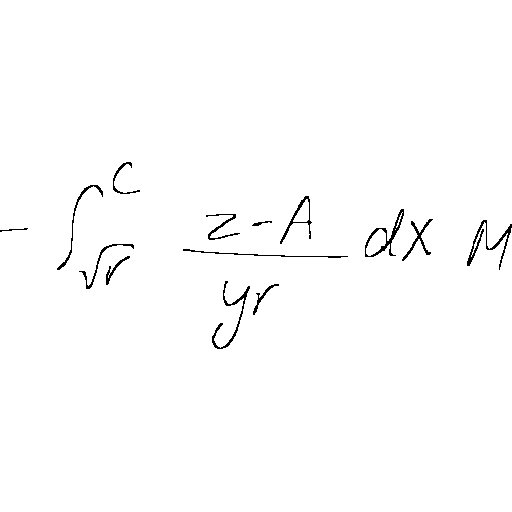 - \int_{\sqrt{r}}^{c} \frac{z-A}{yr} dx M